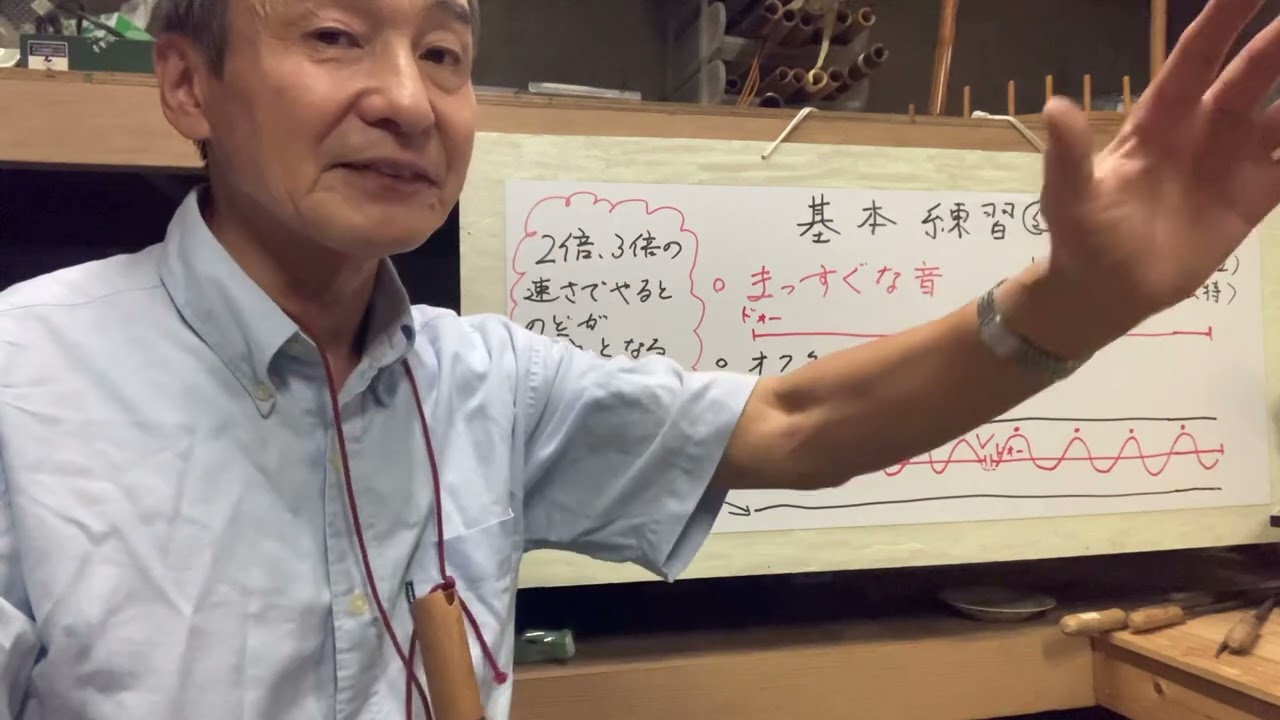 基本練習
2倍、3倍の
速さでやると
のどが
となる
○ まっすぐな音
ドォー
○ オフ